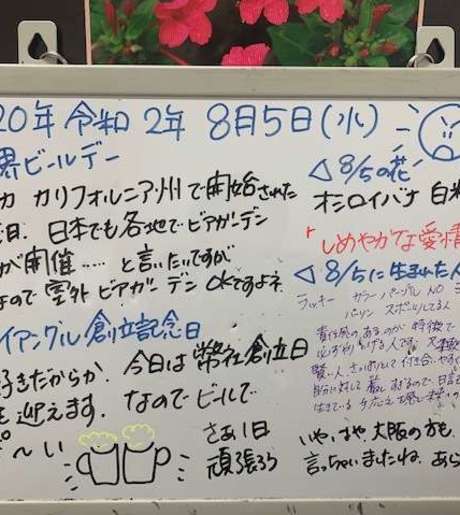 20年 令和2年 8月5日(水)
界ビールデー
カ カリフォルニア州で開始された
日. 日本でも各地でビアガーデン
が開催…… と言いたいですが
なので 室外ビアガーデン OKですよネ
イアングル創立記念日
好きだからか 今日は 弊社創立日
を迎えます. なのでビールで
〜い
さあ1日
頑張ろう
◁ 8/5の花
オシロイバナ 白粉
「しめやかな愛情
◁ 8/5に生まれた人
ラッキー カラー パープル NO
パーソン スポーツしてる人
責任感のあるのが 特徴で
いやいや 大阪の方も
言っちゃいましたね. あら